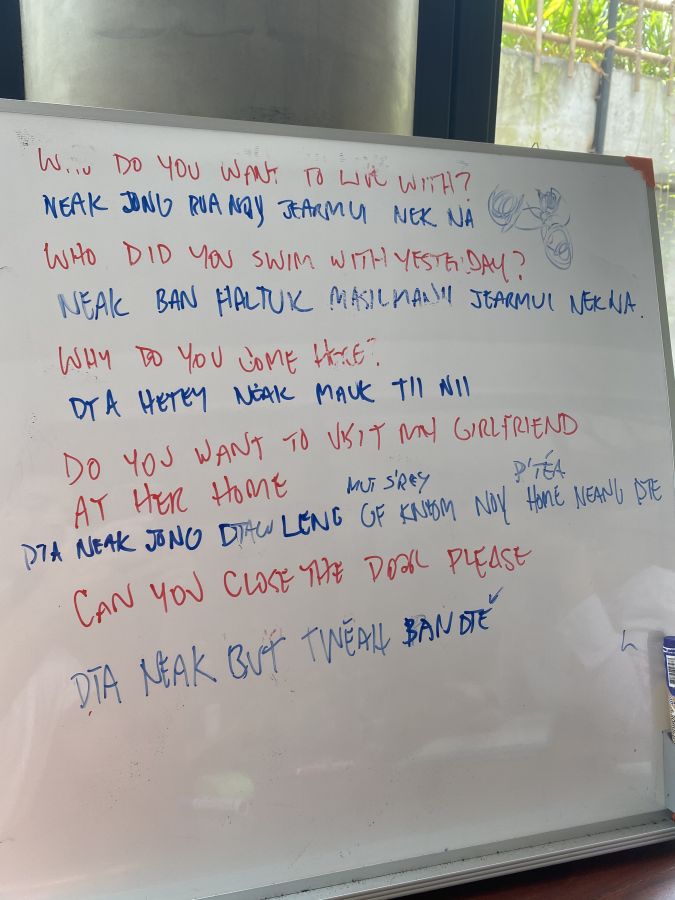 WHO DO YOU WANT TO LIVE WITH?
NEAK JONG RUA NOY JEARMUI NEK NA
WHO DID YOU SWIM WITH YESTERDAY?
NEAK BAN HALTUK MASILMANII JEARMUI NEK NA.
WHY DO YOU COME HERE?
DTA HETEY NEAK MAUK TII NII
DO YOU WANT TO VISIT MY GIRLFRIEND
AT HER HOME
MUT S'REY P'TÉA
DTA NEAK JONG DTAW LENG GF KNEOM NOY HOME NEANG DTE
CAN YOU CLOSE THE DOOR PLEASE
DTA NEAK BUT TWEAH BAN DTE